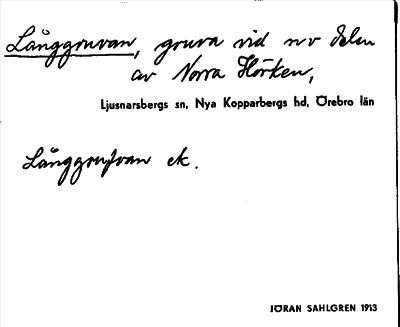 Långgruvan, gruva vid nv delen
av Norra Hörken,
Ljusnarsbergs sn, Nya Kopparbergs hd, Örebro län
Långgrufvan ek.
JÖRAN SAHLGREN 1913